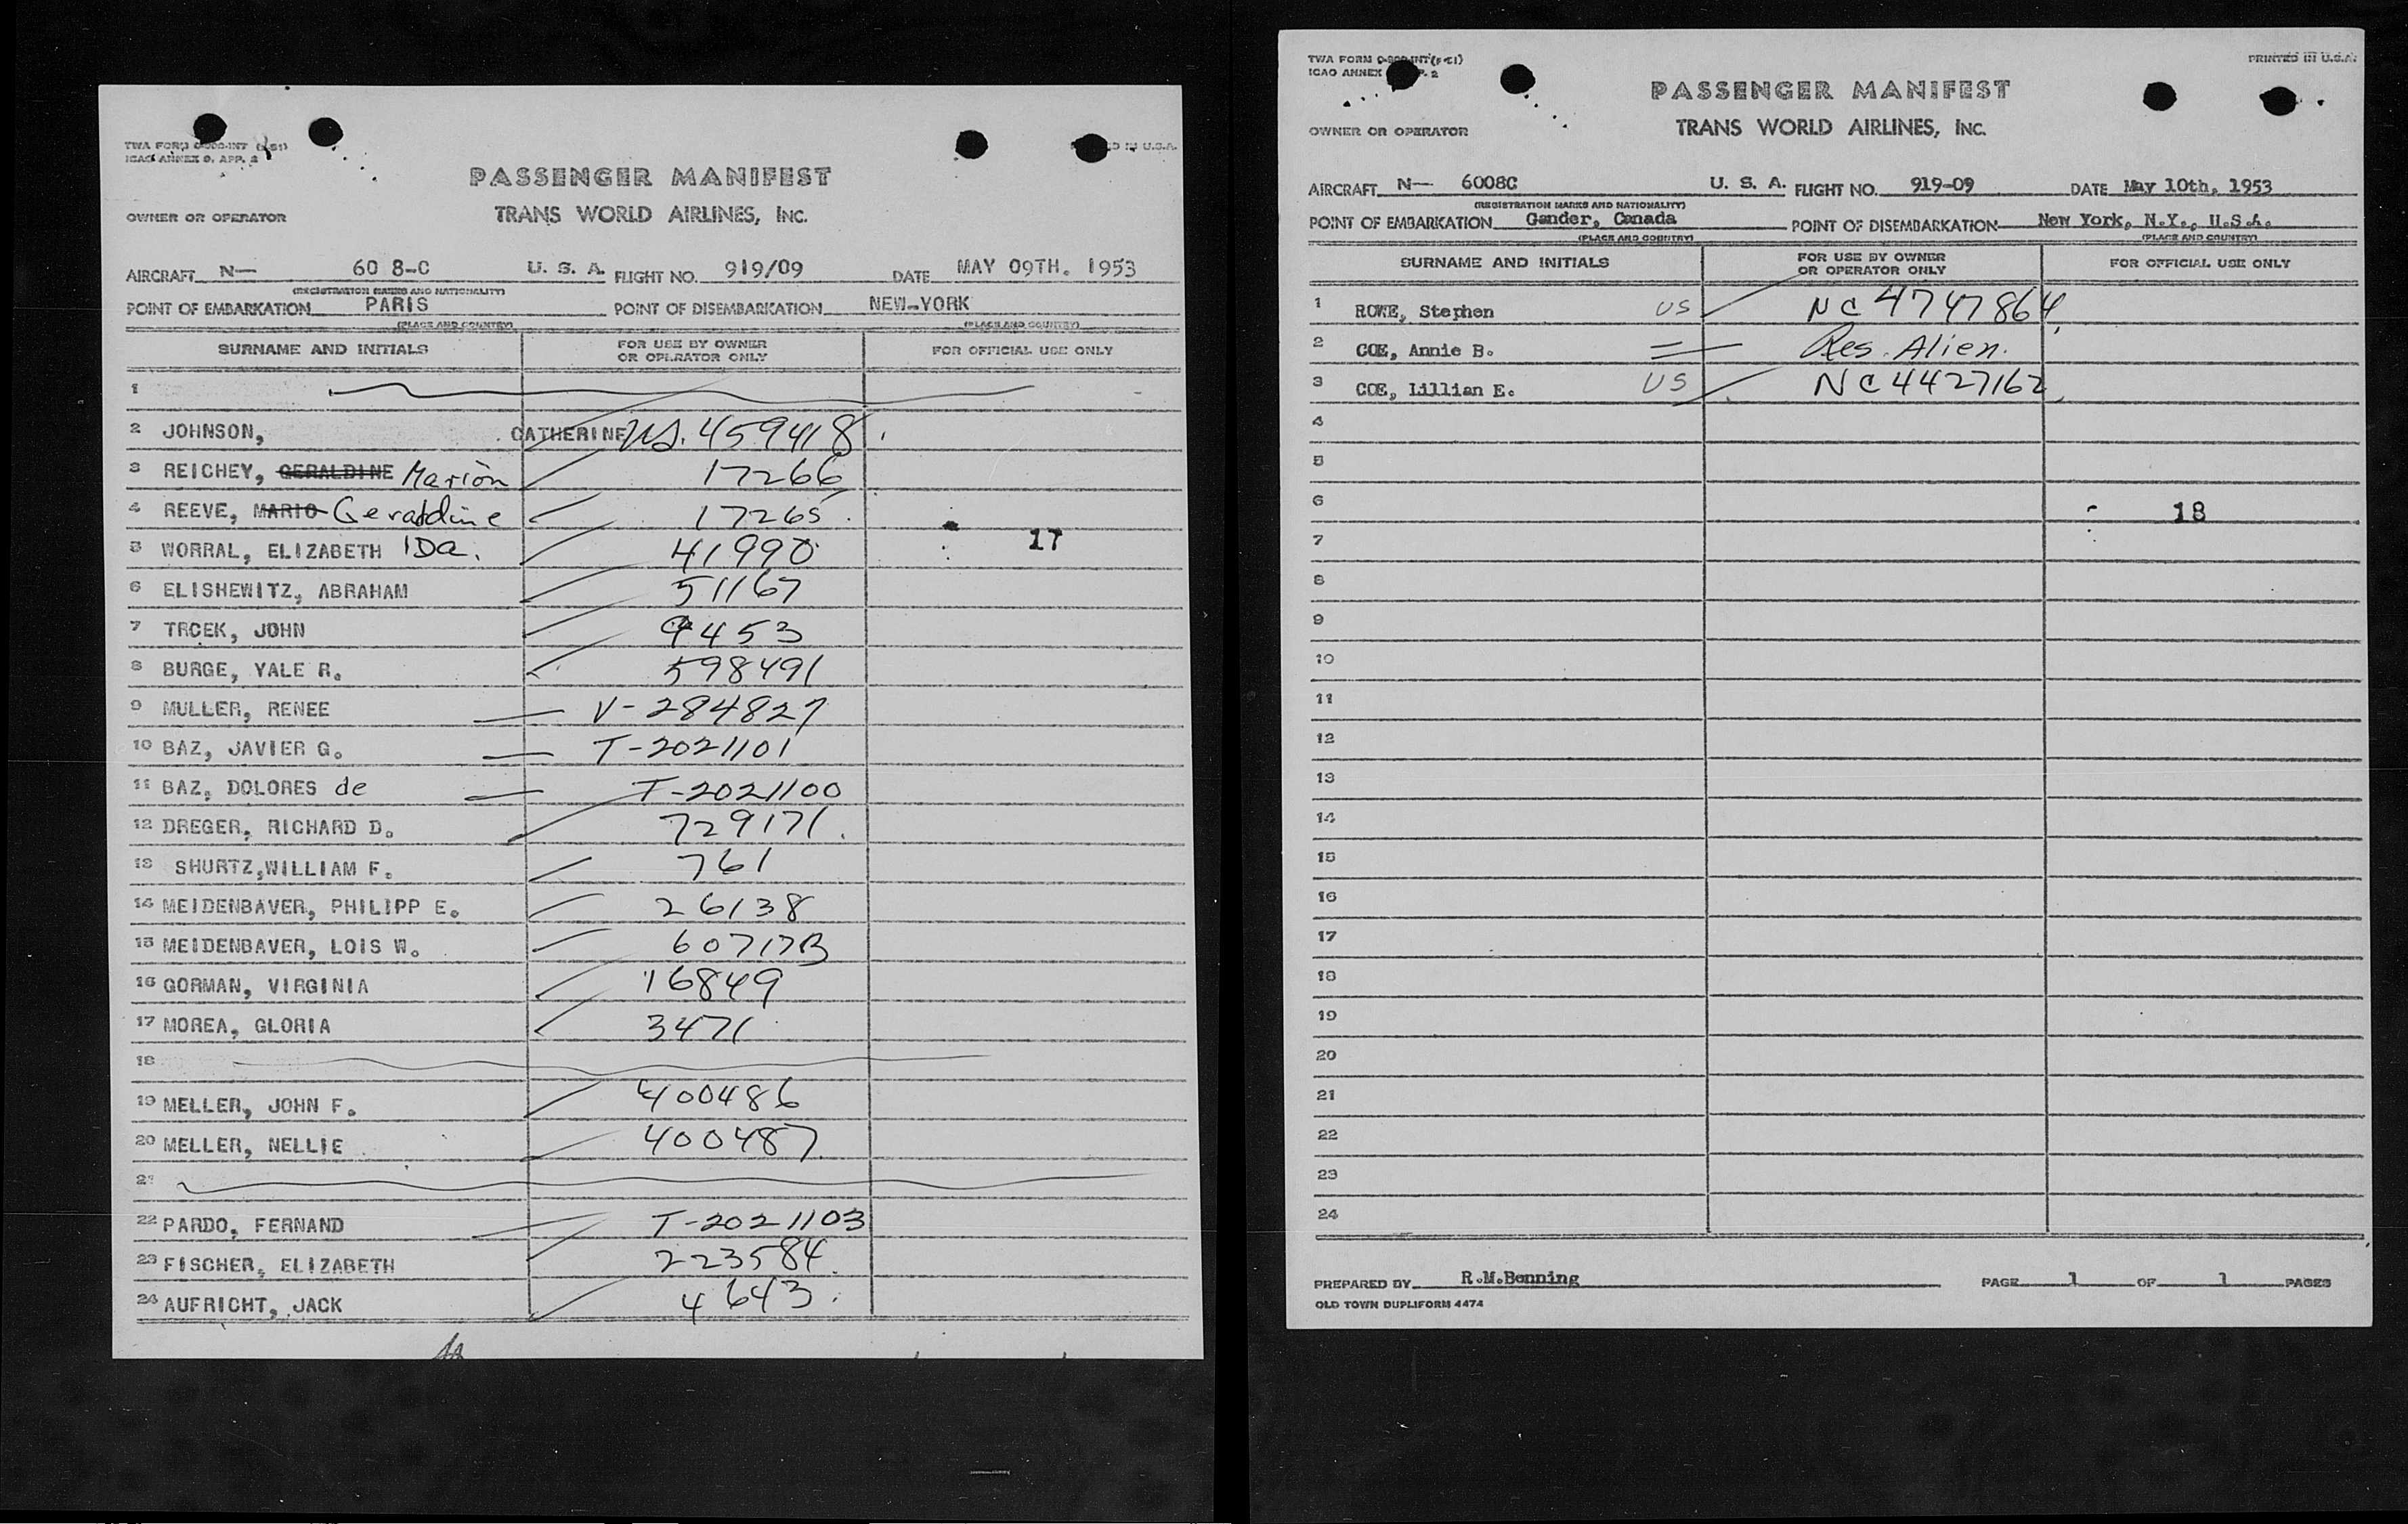 PASSENGER MANIFEST
TRANS WORLD AIRLINES, INC.
OWNER OR OPERATOR
AIRCRAFT N— 60 8-C U. S. A. FLIGHT NO. 919/09 DATE MAY 09TH. 1953
(REGISTRATION MARKS AND NATIONALITY)
POINT OF EMBARKATION PARIS POINT OF DISEMBARKATION NEW-YORK
(PLACE AND COUNTRY) (PLACE AND COUNTRY)
SURNAME AND INITIALS FOR USE BY OWNER OR OPERATOR ONLY FOR OFFICIAL USE ONLY
1
2 JOHNSON, CATHERINE US. 459418
3 REICHEY, GERALDINE Marion 17266
4 REEVE, MARIO Geraldine 17265
5 WORRAL, ELIZABETH IDa. 41990
17
6 ELISHEWITZ, ABRAHAM 51167
7 TROEK, JOHN 9453
8 BURGE, YALE R. 598491
9 MULLER, RENEE V-284827
10 BAZ, JAVIER G. T-2021101
11 BAZ, DOLORES de T-2021100
12 DREGER, RICHARD D. 729171.
13 SHURTZ,WILLIAM F. 761
14 MEIDENBAVER, PHILIPP E. 26138
15 MEIDENBAVER, LOIS W. 60717B
16 GORMAN, VIRGINIA 16849
17 MOREA, GLORIA 3471
18
19 MELLER, JOHN F. 400486
20 MELLER, NELLIE 400487
21
22 PARDO, FERNAND T-2021103
23 FISCHER, ELIZABETH 223584
24 AUFRICHT, JACK 4643
PRINTED IN U.S.A.
PASSENGER MANIFEST
TRANS WORLD AIRLINES, INC.
OWNER OR OPERATOR
AIRCRAFT N— 6008C U. S. A. FLIGHT NO. 919-09 DATE May 10th, 1953
(REGISTRATION MARKS AND NATIONALITY)
POINT OF EMBARKATION Gander, Canada POINT OF DISEMBARKATION New York, N.Y., U.S.A.
(PLACE AND COUNTRY) (PLACE AND COUNTRY)
SURNAME AND INITIALS FOR USE BY OWNER OR OPERATOR ONLY FOR OFFICIAL USE ONLY
1 ROWE, Stephen US NC 4747864
2 COE, Annie B. Res. Alien.
3 COE, Lillian E. US NC 4427162
4
5
6
18
7
8
9
10
11
12
13
14
15
16
17
18
19
20
21
22
23
24
PREPARED BY R.M.Benning PAGE 1 OF 1 PAGES
OLD TOWN DUPLIFORM 4474